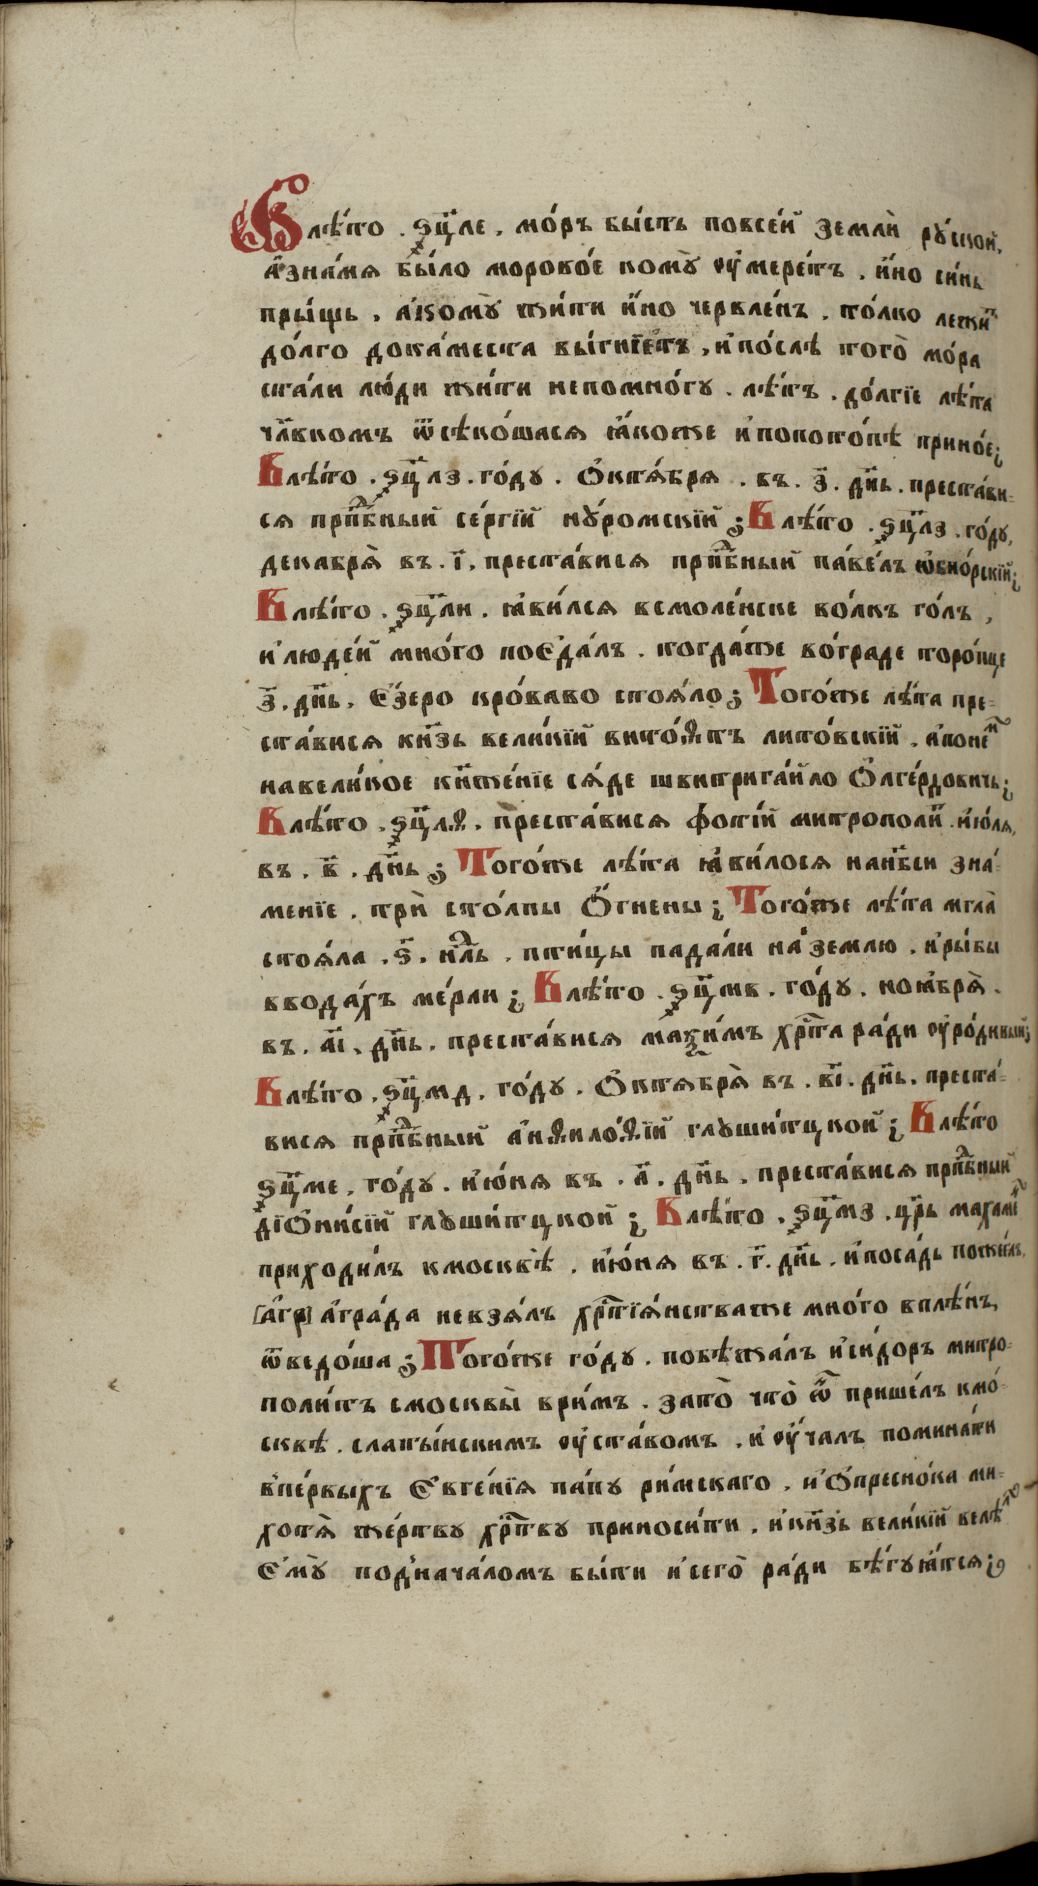 Влѣ́то . ҂ѕц҃ле . мо́ръ бы́сть повсе́й землѝ ру́ской,
а҆зна́мя бы́ло морово́е кому̀ ᲂу҆мере́тъ . и҆́но си́нь
пры́щь . а҆кому̀ жи́ти и҆́но червле́нъ . то́лко лежи́т
до́лго дока́места вы́гнїетъ , и҆по́слѣ того̀ мо́ра
ста́ли лю́ди жи́ти непомно́гу . лѣ́тъ . до́лгїе лѣ́та
чл҃вкомъ ѿсѣко́шася ꙗ҆́коже и҆попото́пѣ при но́е ;
Влѣ́то . ҂ѕц҃лз . го́ду . Ѻ҆ктѧ́бря . въ . з҃ . дн҃ь . преста́ви-
ся прпⷣбный се́ргїй нꙋ́ромскїй ; Влѣ́то . ҂ѕц҃лз . го́ду,
декабря̀ въ . і҃ , преста́вися прпⷣбный па́велъ ѡ҆бно́рскїй ;
Влѣ́то . ҂ѕц҃ли . ꙗ҆ви́лся всмоле́нске во́лкъ го́лъ ,
и҆люде́й мно́го поѣда́лъ . тогда́же во́граде торо́пце
з҃ . дн҃ь . Є҆́зеро кро́ваво стоя́ло ; Того́же лѣ́та пре-
ста́вися кн҃зь вели́кїй вито́ѳтъ лито́вскїй . и҆поне́м
навели́кое кн҃же́нїе ся́де швитрига́йло Ѻ҆лге́рдовичь ;
Влѣ́то . ҂ѕц҃лѳ . преста́вися фоті́й митрополи́т . и҆ю́ля,
въ . в҃ . дн҃ь ; Того́же лѣ́та ꙗ҆ви́лося нанб҃си зна́-
менїе . трѝ столпы̀ Ѻ҆́гнены ; Того́же лѣ́та мгла̀
стоя́ла . ѕ҃ . нⷣль . пти́цы пада́ли на́землю . и҆ры́бы
вводáхъ ме́рли ; Влѣ́то . ҂ѕц҃мв . го́ду . ноꙗ҆бря̀ .
въ . а҃і . дн҃ь . преста́вися маѯи́мъ хрⷭта ра́ди ᲂу҆ро́дивый ;
Влѣ́то . ҂ѕц҃мд . го́ду . Ѻ҆ктября̀ въ . в҃і . дн҃ь . преста́-
вися прпⷣбный а҆нѳило́ѳїй глуши́тцкой ; Влѣ́то
҂ѕц҃ме . го́ду . и҆ю́ня въ . а҃ . дн҃ь . преста́вися прпⷣбный
дїѻни́сїй глуши́тцкой ; Влѣ́то . ҂ѕц҃мз . цр҃ь махаме́т
приходи́лъ кмосквѣ̀ . и҆ю́ня въ . г҃ . дн҃ь . и҆поса́дъ поже́глъ,
[а҆гр] а҆гра́да невзя́лъ хрⷭтїя́нстваже мно́го вплѣ́нъ,
ѿведо́ша ; Того́же го́ду . побѣжа́лъ и҆си́доръ митро-
поли́тъ смосквы̀ врѝмъ . зато̀ что̀ ѻ҆́н прише́лъ кмо́-
сквѣ . слаты́нскимъ ᲂу҆ста́вомъ . и҆ᲂу҆ча́лъ помина́ти
впе́рвыхъ Є҆вге́нїя па́пу ри́мскаго . и҆Ѻ҆пресно́ка ми-
хотя̀ же́ртву хрⷭтву приноси́ти . и҆кн҃зь вели́кїй велѣ́л
Є҆му̀ под̾нача́ломъ бы́ти и҆сего̀ ра́ди бѣ́гуꙗ҆́тся ;